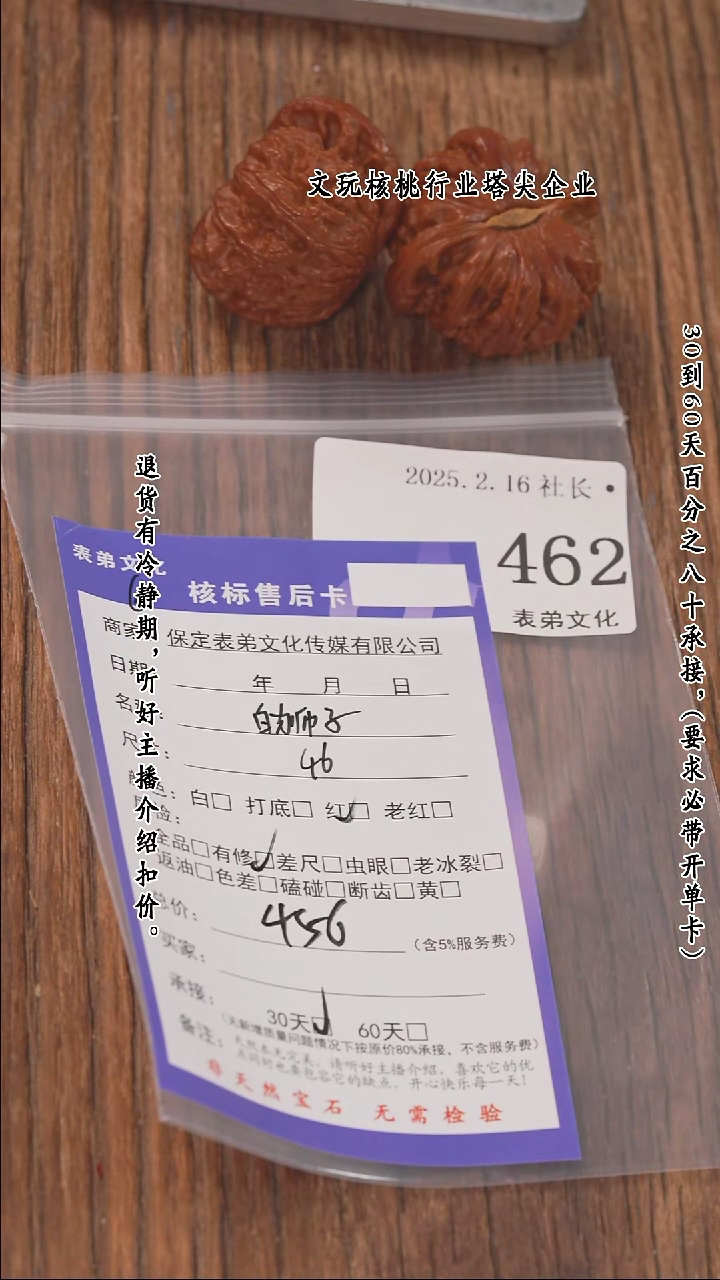 文玩核桃行业塔尖企业
30到60天百分之八十承接，（要求必带开单卡）
退货有冷静期，听好主播介绍扣价。
2025.2.16 社长
462
表弟文化
表弟文化
核桃售后卡
保定表弟文化传媒有限公司
年 月 日
白狮子
46
白□ 打底□ 红☑ 老红□
全品□有修☑差尺□虫眼□老冰裂□
返油□色差□磕碰□断齿□黄□
总价： 456 （含5%服务费）
买家：
承接： 30天☑ 60天□
（无新增质量问题情况下按原价80%承接，不含服务费）
备注： 天然本无完美，请听好主播介绍，喜欢它的优
点同时也要包容它的缺点，开心快乐每一天！
非天然宝石 无需检验